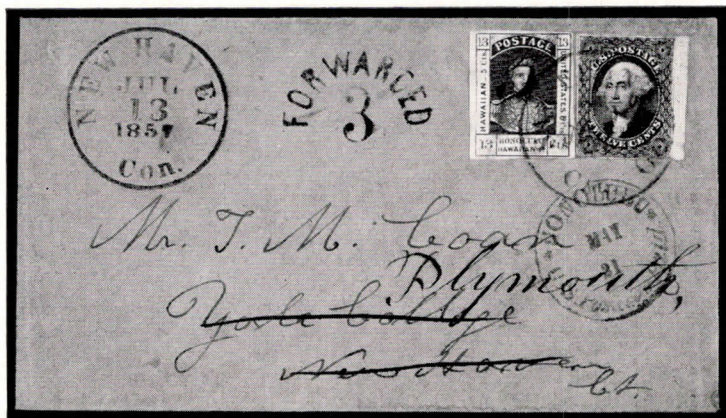 NEW HAVEN
JUL
13
1857
Con.
FORWARDED
3
13 POSTAGE 13
HAWAIIAN - 5 Cts.
UNITED STATES
HONOLULU
HAWAIIAN
13
U.S. POSTAGE
TWELVE CENTS
HONOLULU
MAY
21
Mr. T. M. Coan
Plymouth,
Yale College
New Haven
Ct.